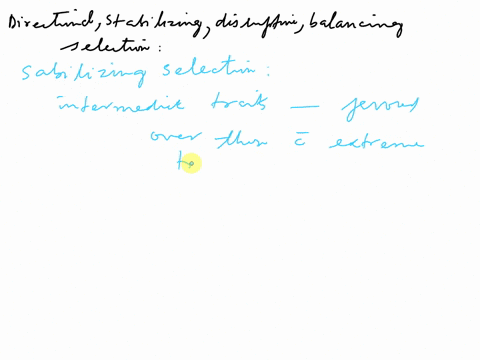 Directind, stabilizing, disruptive, balancing
selection:
sabilizing selection:
intermedict traits — favous
over thise c̄ extreme
te